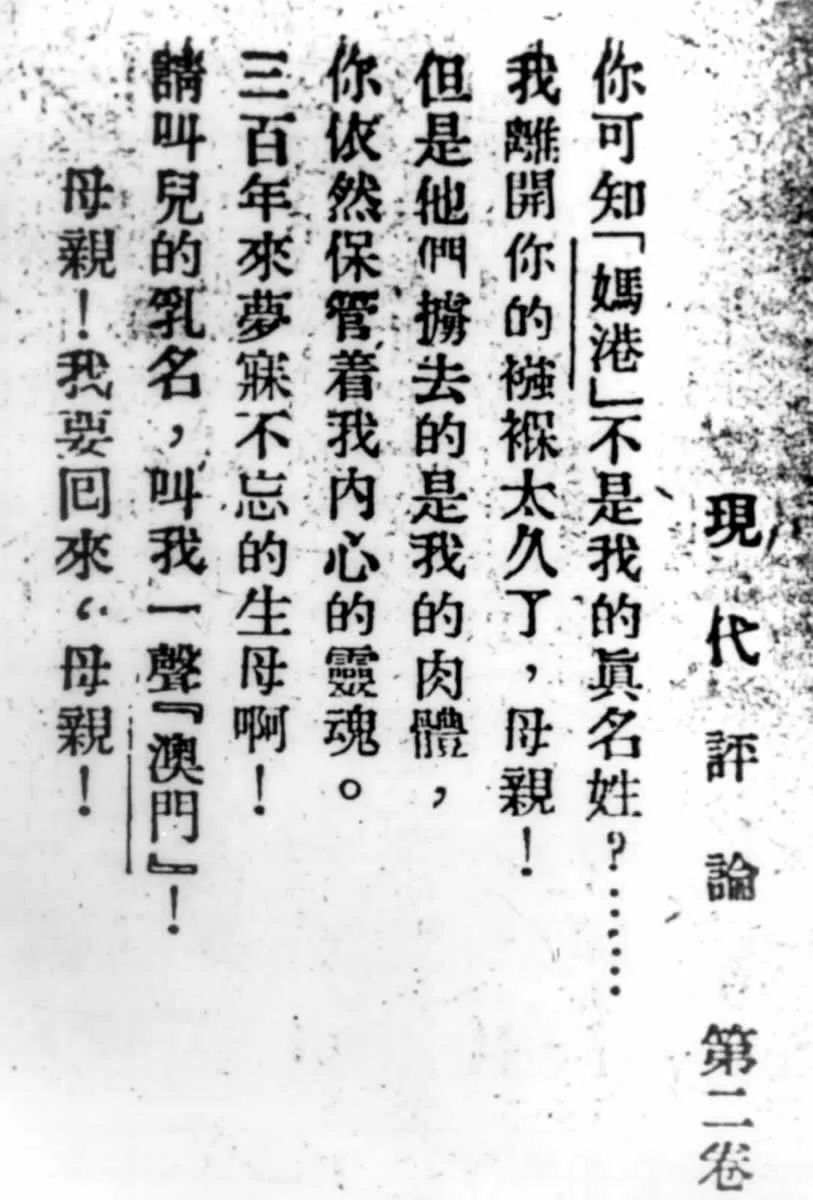 現代評論 第二卷
你可知「媽港」不是我的眞名姓？……
我離開你的襁褓太久了，母親！
但是他們擄去的是我的肉體，
你依然保管着我內心的靈魂。
三百年來夢寐不忘的生母啊！
請叫兒的乳名，叫我一聲『澳門』！
母親！我要回來，母親！